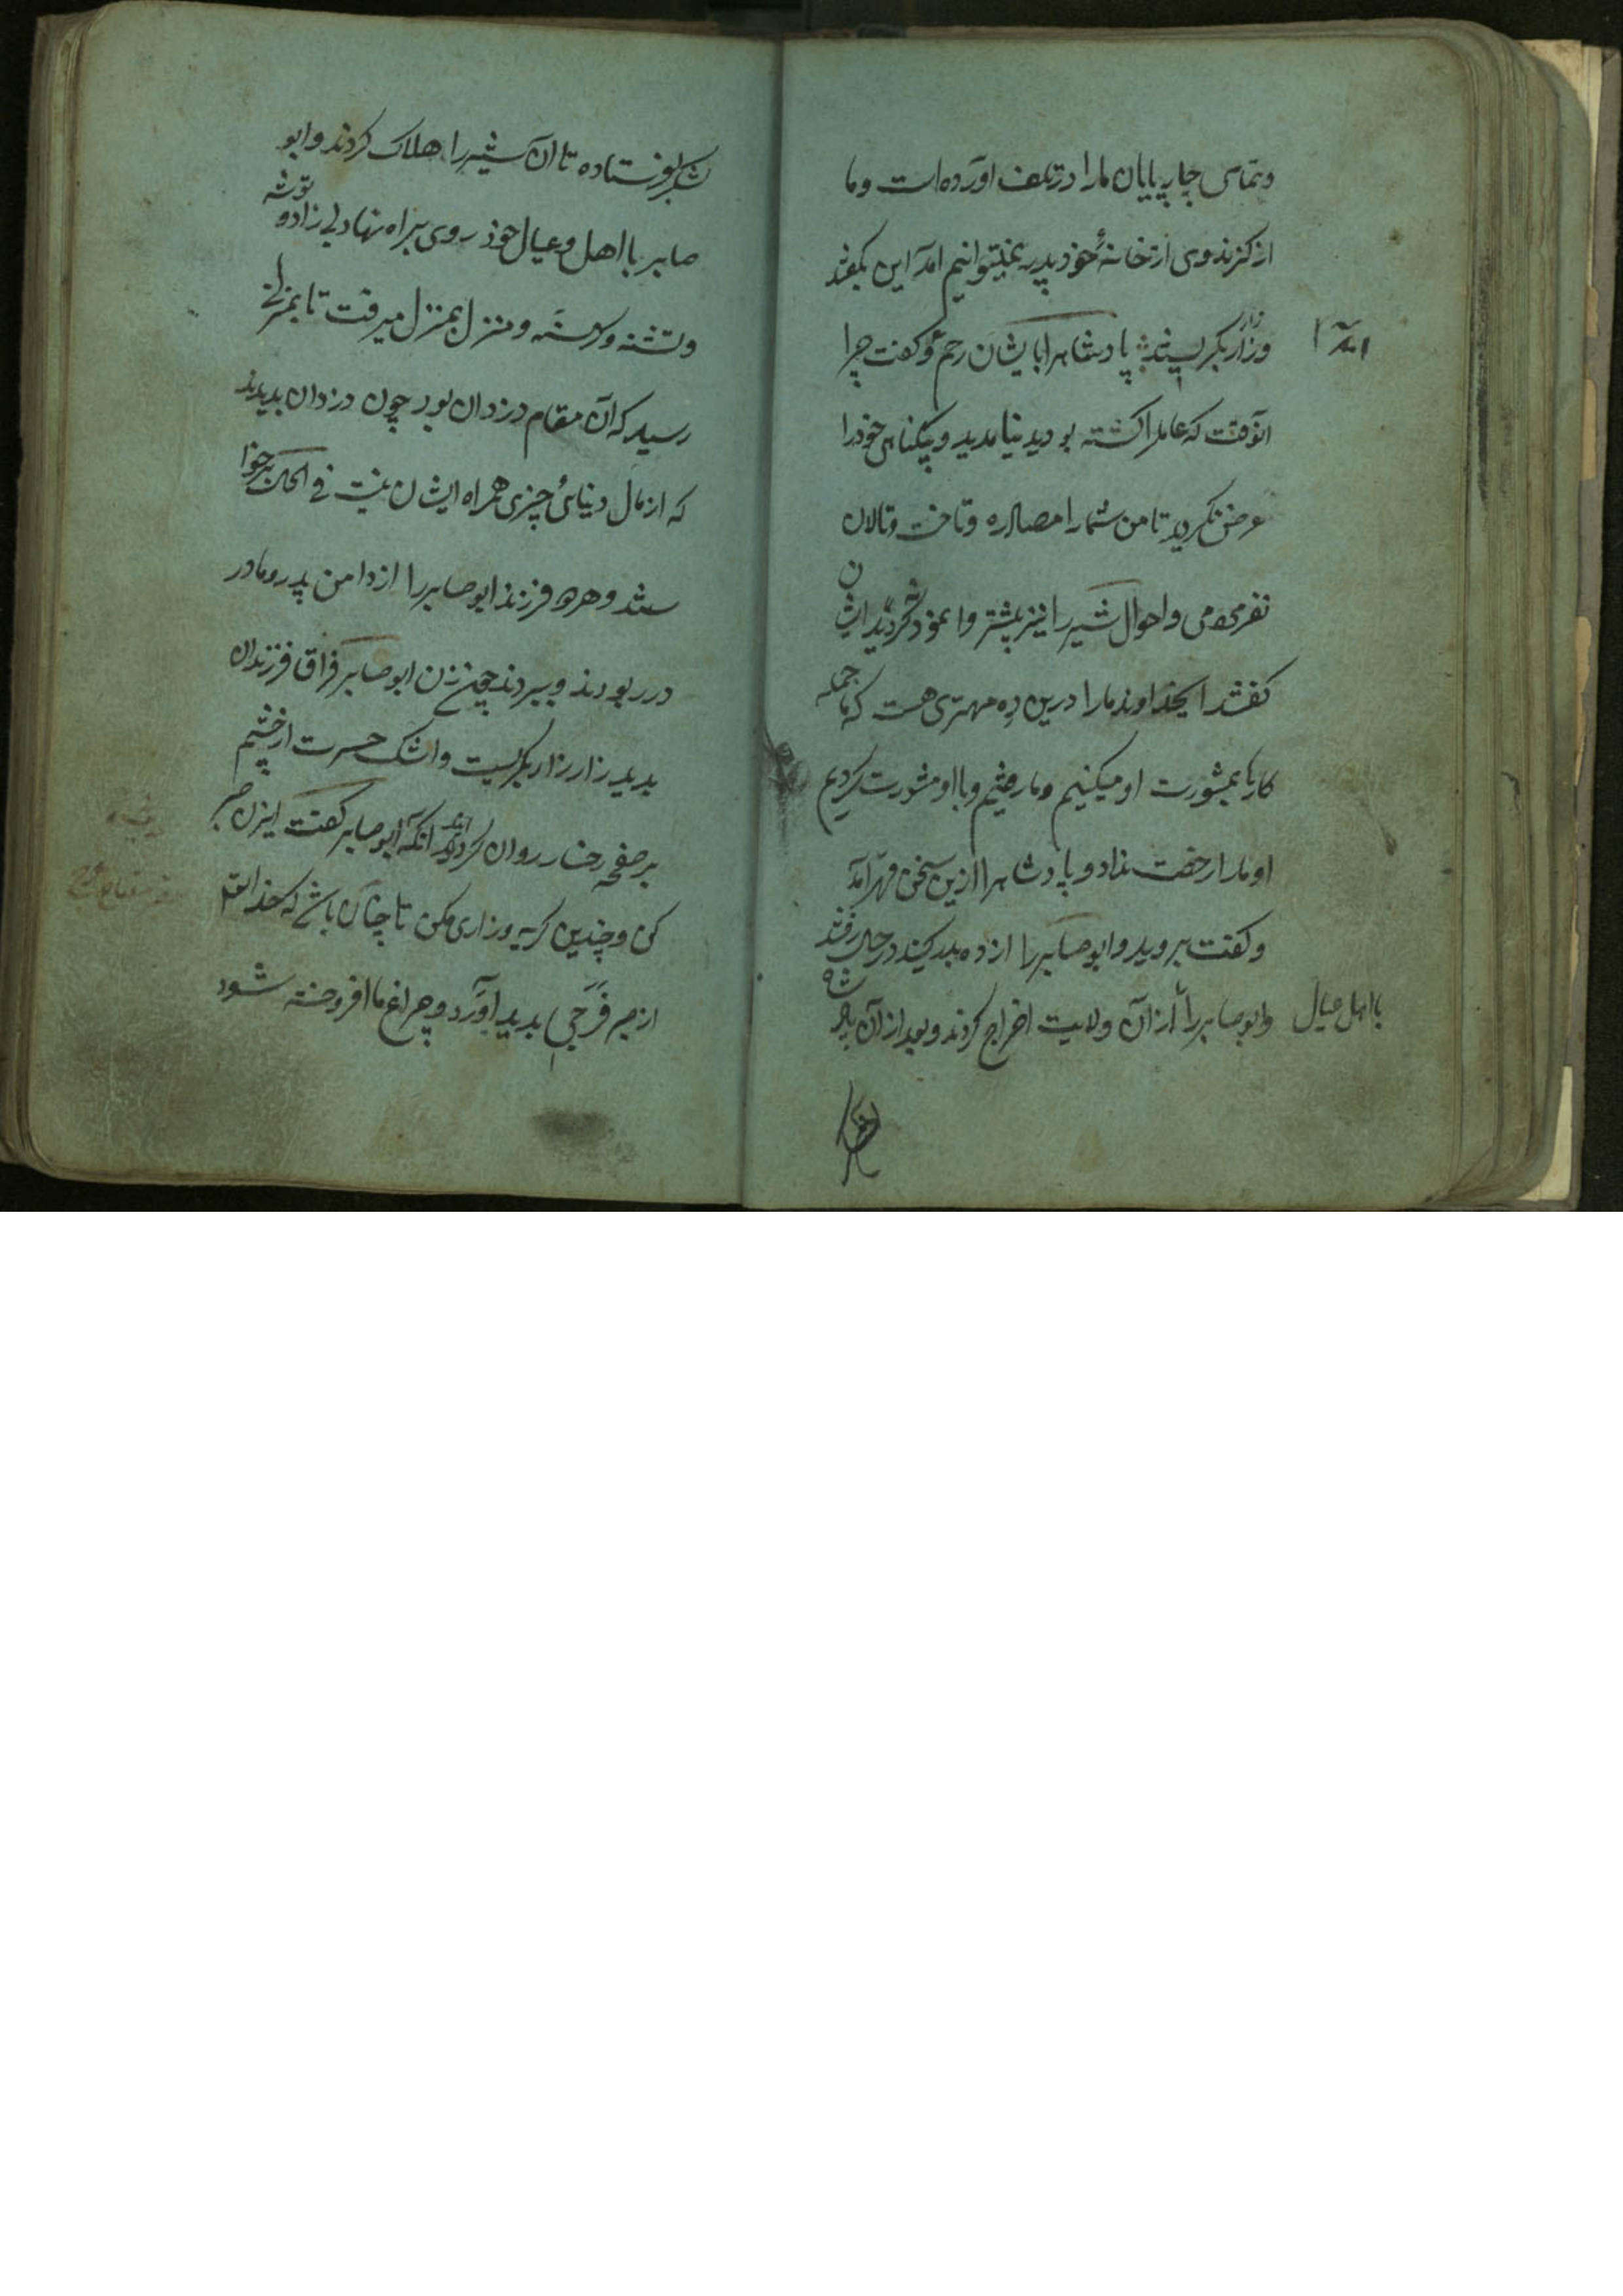 وتمامی چارپایان مارا در تلف آورده است وما
از کزند وی از خانهٔ خود بدر نمیتوانیم آمد این بگفتند
وزار زار بگریستند پادشاهرا بایشان رحم آمد وگفت چرا
آنوقت که عاملرا کشته بودید نیامدید وبیگناهی خودرا
عرض نکردید تا من شمارا مصادره وتاخت وتالان
نفرمودمی واحوال شیر را نیز پیشتر وا نمود نکردید ایشان
گفتند ایخداوند مارا درین ده مهتری هست که ما جمله
کارها بمشورت او میکنیم وما رفتیم وبا او مشورت کردیم
او مارا رخصت نداد و پادشاهرا ازین سخن قهر آمد
وگفت بروید وابو صابر را از ده بدر کنید در حال رفتند
وابو صابر را با اهل عیال از آن ولایت اخراج کردند وبعد از آن پادشاه
لشکر بفرستاده تا آن شیر را هلاک کردند وابو
صابر با اهل وعیال خود روی براه نهاد بی زاد و توشه
وتشنه وگرسنه ومنزل بمنزل میرفت تا بمنزلی
رسید که آن مقام دزدان بود چون دزدان بدیدند
که از مال دنیائی چیزی همراه ایشان نیست فی الحال
شد وهر دو فرزند ابو صابر را از دامن پدر ومادر
در ربودند وببردند چون زن ابو صابر فراق فرزندان
بدید زار زار بگریست واشک حسرت از چشم
بر صفحه رخسار روان کردند آنکه ابو صابر گفت ایزن صبر
کن وچندین گریه وزاری مکن تا چنان باشد که خدایتعالی
از صبر فرجی بدید آورد وچراغ ما افروخته شود